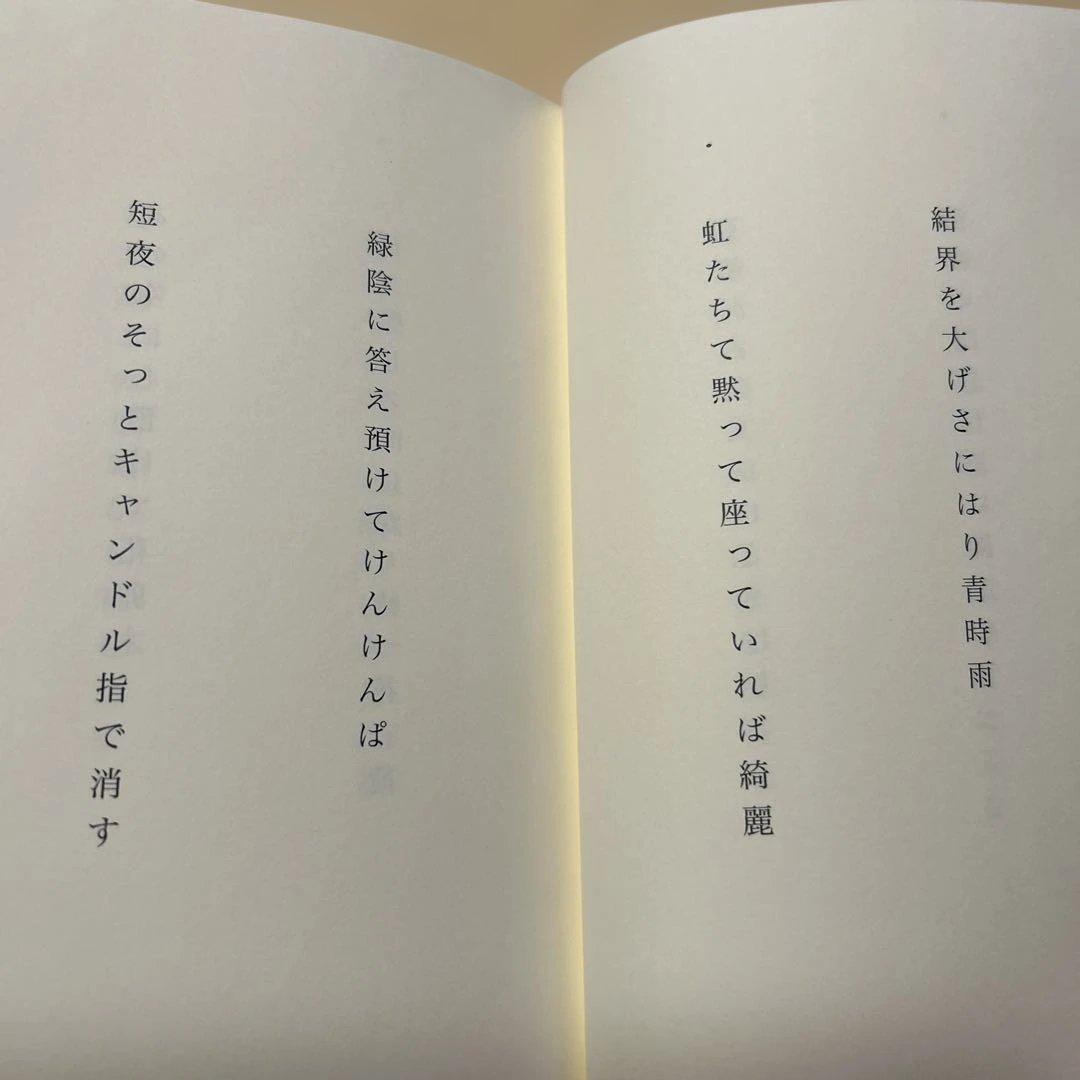 結界を大げさにはり青時雨
虹たちて黙って座っていれば綺麗
緑陰に答え預けてけんけんぱ
短夜のそっとキャンドル指で消す